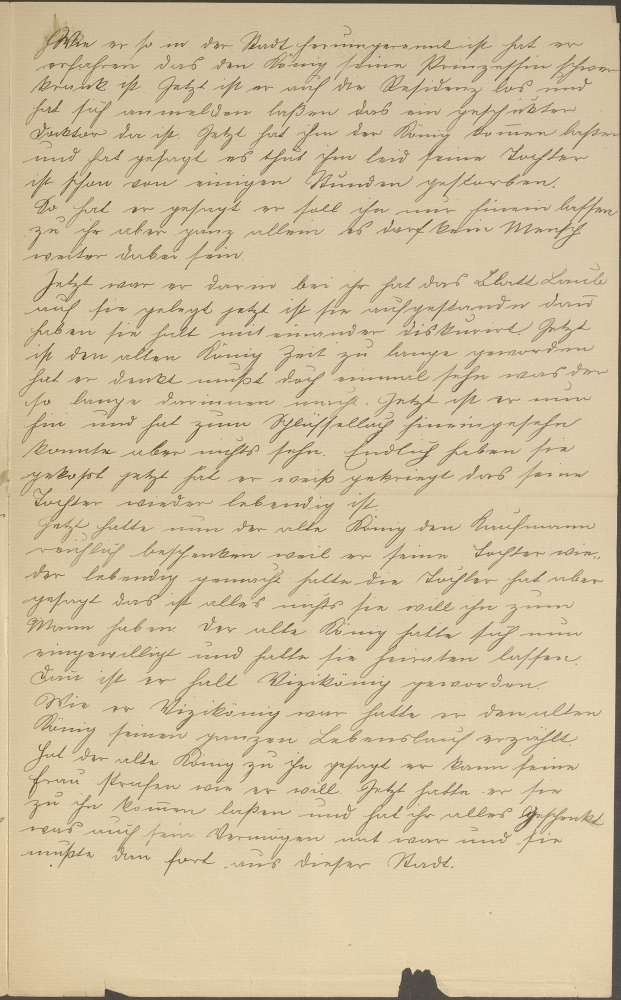 Wie er so in der Stadt herumgerennt ist hat er
erfahren das den König seine Prinzessin schwer
krank ist Jetzt ist er auf die Residenz los und
hat sich anmelden laßen das ein geschickter
Docktor da ist. Jetzt hat ihn der König komen laßen
und hat gesagt es thut ihm leid seine Tochter
ist schon von einigen Stunden gestorben.
Da hat er gesagt er soll ihn nur hinein lassen
zu ihr aber ganz allein es darf kein Mensch
weiter dabei sein.
Jetzt war er darin bei ihr hat das Blatt Laub
auf sie gelegt jetzt ist sie aufgestanden dan
haben sie halt mit einander diskurirt. Jetzt
ist den alten König Zeit zu lange geworden
hat er denkt mußt doch einmal sehn was der
so lange darinnen macht. Jetzt ist er nun
hin und hat zum Schlüsselloch hineingesehn
konnte aber nichts sehn. Endlich haben sie
gekopft jetzt hat er weiß gekriegt das seine
Tochter wieder lebendig ist.
Jetzt hatte nun der alte König den Kaufmann
reichlich beschenken weil er seine Tochter wie„
der lebendig gemacht hatte die Tochter hat aber
gesagt das ist alles nichts sie will ihn zum
Mann haben. Der alte König hatte sich nun
eingewilligt und hatte sie heiraten lassen.
Dan ist er halt Vizikönig geworden.
Wie er Vizikönig war hatte er den alten
König seinen ganzen Lebenslauf erzählt.
Hat der alte König zu ihn gesagt er kann seine
Frau strafen wie er will. Jetzt hatte er sie
zu ihn komen laßen und hat ihr alles Geschenkt
was auch sein Vermögen mit war und sie
mußte dan fort aus dieser Stadt.